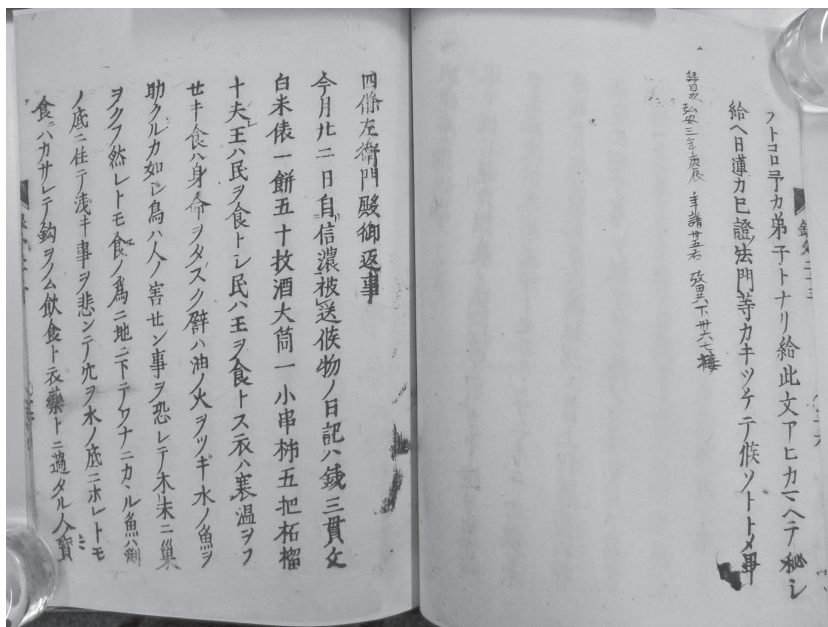 フトコロヲカ弟子トナリ給此文アヒカマヘテ秘シ
給ヘ日蓮カ已證ノ法門等カキツケテ候ソトトメ畢
録目久 弘安三年庚辰 年譜廿五右 攷異下廿六七接
四條左衛門殿御返事
今月廿二日自信濃被送候物ノ日記ハ銭三貫文
白米俵一餅五十枚酒大筒一小串柿五把柘榴
十夫王ハ民ヲ食トシ民ハ王ヲ食トス衣ハ寒温ヲフ
せキ食ハ身命ヲタスク譬ハ油ノ火ヲツギ水ノ魚ヲ
助クルカ如シ鳥ハ人ノ害セン事ヲ恐レテ木末ニ巣
ヲクフ然レトモ食ノ爲ニ地ニ下テワナニカヽル魚ハ淵
ノ底ニ住テ浅キ事ヲ悲ンテ穴ヲ水ノ底ニホレトモ
食ニハカサレテ鈎ヲノム飲食ト衣藥トニ過タル人ノ寳